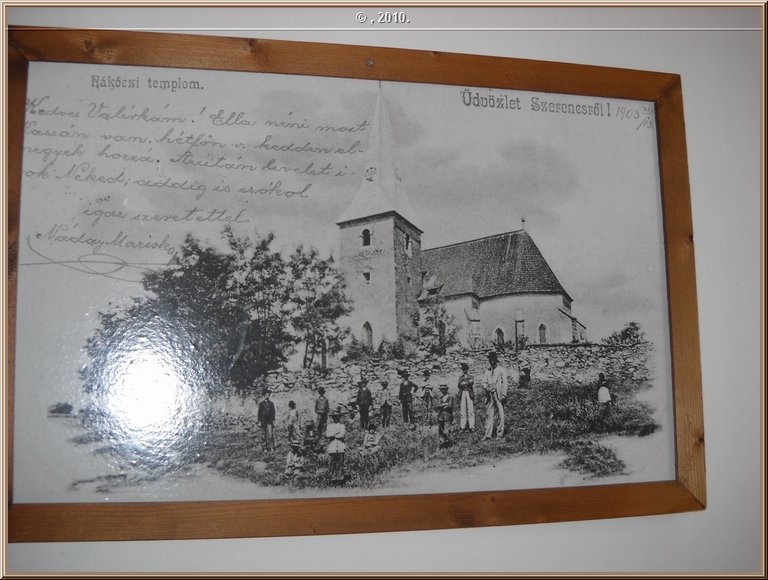 © , 2010.
Rákóczi templom.
Üdvözlet Szerencsről! 1903
Kedves Valérkám! Ella néni most
Kassán van, hétfőn v. kedden el-
megyek hozza. Azután levelet i-
rok Néked, addig is csókol
igaz szeretettel
Náday Mariska